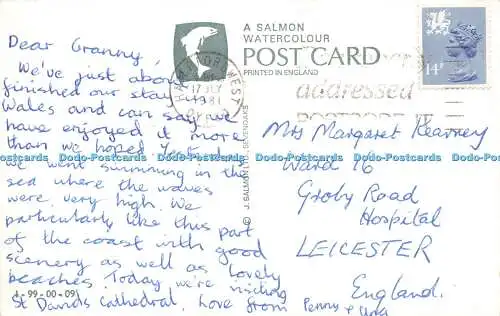 Dear Granny,
We've just about
finished our stay in
Wales and can say we
have enjoyed it more
than we hoped. Yesterday
we went swimming in the
sea where the waves
were very high. We
particularly like this part
of the coast with good
scenery as well as lovely
beaches. Today we're visiting
St Davids Cathedral. Love from Penny &
1-99-00-09
A SALMON
WATERCOLOUR
POST CARD
PRINTED IN ENGLAND
© J. SALMON LTD., SEVENOAKS
HAVERFORDWEST
17 JLY
1981
addressed
14P
Mrs Margaret Kearney
Ward 16
Groby Road
Hospital
LEICESTER
England.
Dodo-Postcards Dodo-Postcards Dodo-Postcards Dodo-Postcards Dodo-Postcards